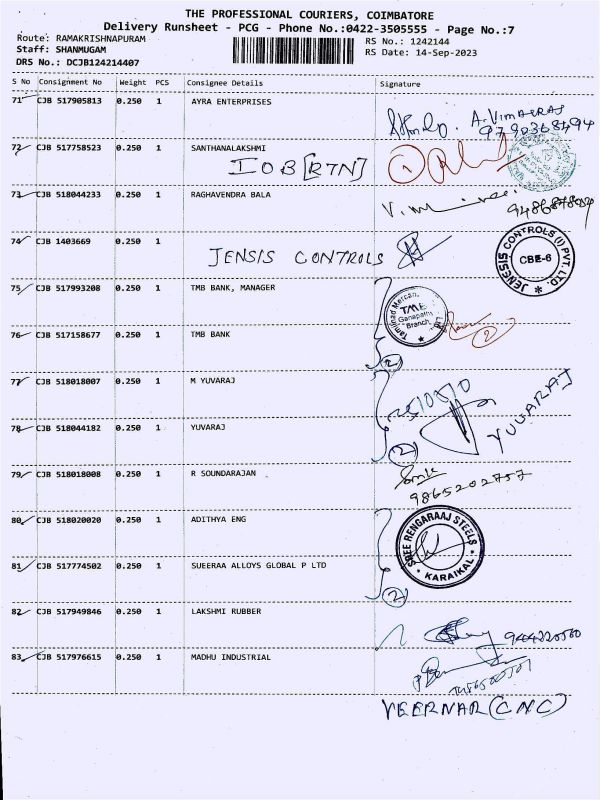 THE PROFESSIONAL COURIERS, COIMBATORE
Delivery Runsheet - PCG - Phone No.:0422-3505555 - Page No.:7
Route: RAMAKRISHNAPURAM
Staff: SHANMUGAM
DRS No.: DCJB124214407
RS No.: 1242144
RS Date: 14-Sep-2023
S No Consignment No Weight PCS Consignee Details Signature
71 CJB 517905813 0.250 1 AYRA ENTERPRISES
A. VIMALRAJ
72 CJB 517758523 0.250 1 SANTHANALAKSHMI
IOB [RTN] 1
73 CJB 518044233 0.250 1 RAGHAVENDRA BALA
74 CJB 1403669 0.250 1
JENSIS CONTROLS
JENESIS CONTROLS (I) PVT. LTD.
CBE-6
75 CJB 517993208 0.250 1 TMB BANK, MANAGER
Tamilnad Mercan.
TMB
Ganapathy
Branch
76 CJB 517158677 0.250 1 TMB BANK
2
2
77 CJB 518018007 0.250 1 M YUVARAJ
YUVARAJ
78 CJB 518044182 0.250 1 YUVARAJ
2
79 CJB 518018008 0.250 1 R SOUNDARAJAN
9865202757
80 CJB 518020020 0.250 1 ADITHYA ENG
SREE RENGARAAJ STEELS
KARAIKAL
81 CJB 517774502 0.250 1 SUEERAA ALLOYS GLOBAL P LTD
2
82 CJB 517949846 0.250 1 LAKSHMI RUBBER
83 CJB 517976615 0.250 1 MADHU INDUSTRIAL
VEERNAR (CNC)